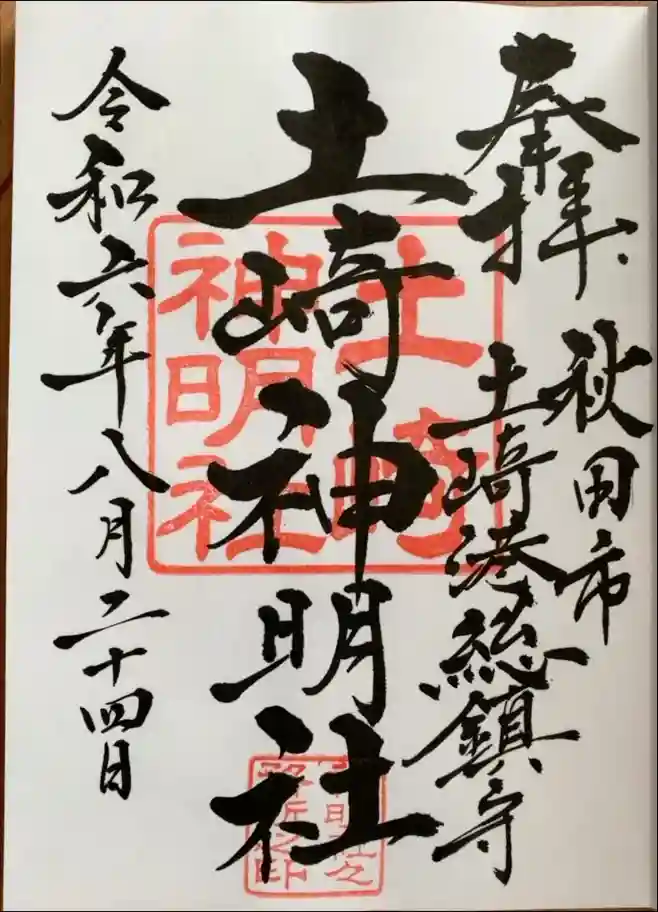 奉拝
秋田市
土崎港総鎮守
土崎神明社
令和六年八月二十四日
土崎
神明社